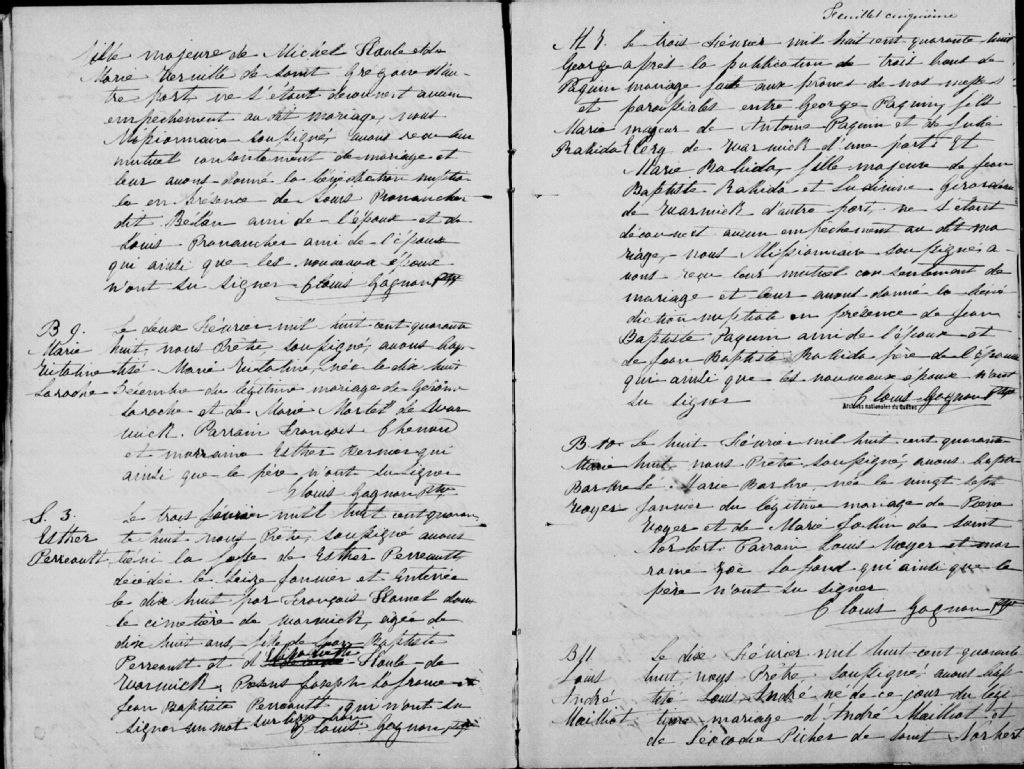 fille majeure de Michel Houle et de
Marie Verville de Saint Grégoire d'au-
tre part ne s'étant découvert aucun
empêchement au dit mariage, nous
Missionnaire soussigné, avons reçu leur
mutuel consentement de mariage et
leur avons donné la bénédiction nuptia
le en présence de Louis Pronancher
dit Belan ami de l'époux et de
Louis Pronancher ami de l'épouse
qui ainsi que les nouveaux époux
n'ont su signer Clovis Gagnon Ptre
B 9.
Marie
Laroche
Le deux Février mil huit cent quarante
huit, nous Prêtre, soussigné, avons bap
tisé Marie née le dix huit
Décembre du légitime mariage de
Laroche et de Marie Martel de War
wick. Parrain François
et marraine Esther Bernier qui
ainsi que le père n'ont su signer
Clovis Gagnon Ptre
S. 3.
Esther
Perreault
Le trois février mil huit cent quaran
te huit nous Prêtre, soussigné avons
béni la fosse de Esther Perreault
décédée le seize Janvier et enterrée
le dix huit par François Hamel dans
le cimetière de Warwick, agée de
dix huit ans, fille de Jean Baptiste
Perreault et d' Houle de
Warwick. Présens Joseph et
Jean Baptiste Perreault qui n'ont su
signer un mot sur
Clovis Gagnon Ptre
Feuillet cinquième
M 5.
George
Paquin
et
Marie
Rahida
Le trois Février mil huit cent quarante huit
après la publication de trois bans de
mariage faite aux prônes de nos messes
paroissiales entre George Paquin, fils
majeur de Antoine Paquin et de Julie
Clerq de Warwick d'une part: Et
Marie Rahida, fille majeure de Jean
Baptiste Rahida et
de Warwick d'autre part, ne s'étant
découvert aucun empêchement au dit ma
riage, nous Missionnaire soussigné, a-
vons reçu leur mutuel consentement de
mariage et leur avons donné la béné
diction nuptiale en présence de Jean
Baptiste Paquin ami de l'époux et
de Jean Baptiste Rahida père de l'épouse
qui ainsi que les nouveaux époux n'ont
su signer Clovis Gagnon Ptre
Archives nationales du Québec
B 10.
Marie
Barbre
Voyer
Le huit Février mil huit cent quarante
huit, nous Prêtre soussigné, avons bapti
sé Marie Barbre, née le vingt sept
Janvier du légitime mariage de Pierre
Voyer et de Marie de Saint
Norbert. Parrain Louis Voyer et mar
raine Zoé Lafond qui ainsi que le
père n'ont su signer
Clovis Gagnon Ptre
B 11
Louis
André
Mailliot
Le dix Février mil huit cent quarante
huit, nous Prêtre, soussigné, avons bap
tisé Louis André né de ce jour du légi
time mariage d'André Mailliot et
de Léocadie Picher de Saint Norbert